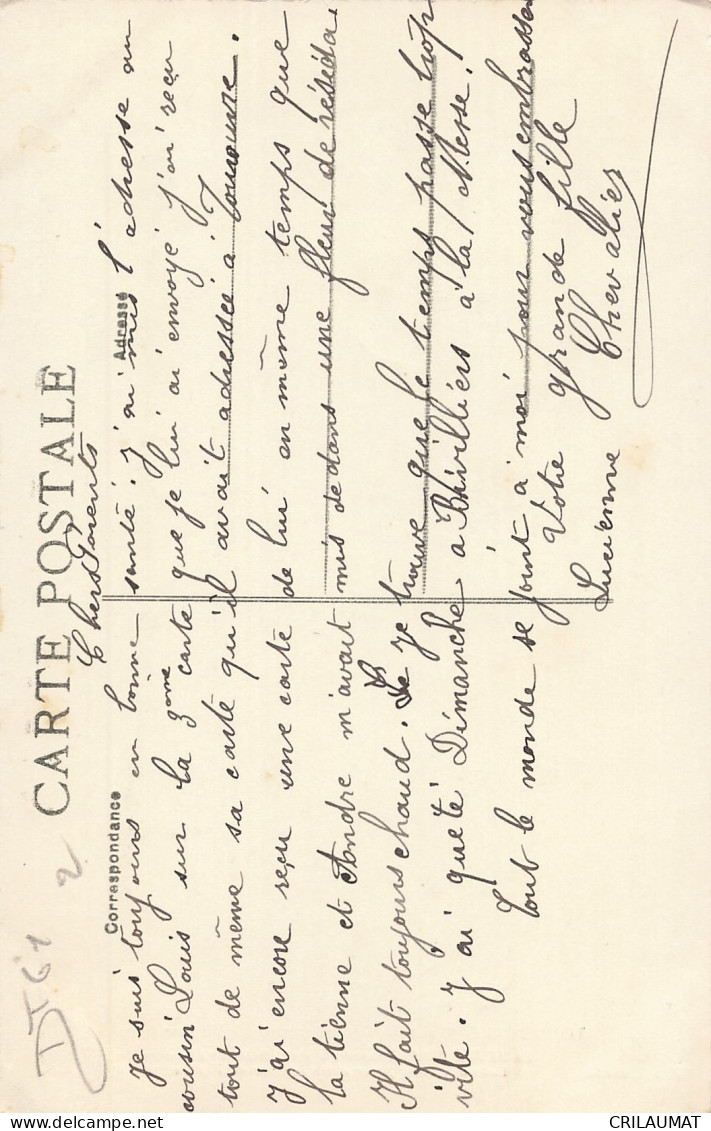 CARTE POSTALE
Correspondance
Adresse
Chers Parents
Je suis toujours en bonne santé. J'ai mis l'adresse au
cousin Louis sur la 2ème carte que je lui ai envoyé j'ai reçu
tout de même sa carte qu'il avait adressée à
J'ai encore reçu une carte de lui en même temps que
la tienne et Andre m'avait mis dedans une fleur de réséda.
Il fait toujours chaud. Je trouve que le temps passe trop
vite. J'ai quêté Dimanche à Bhivilliers à la Messe.
Tout le monde se joint à moi pour vous embrasser
Votre grande fille
Lucienne Chevalier
DT61
2
CRILAUMAT